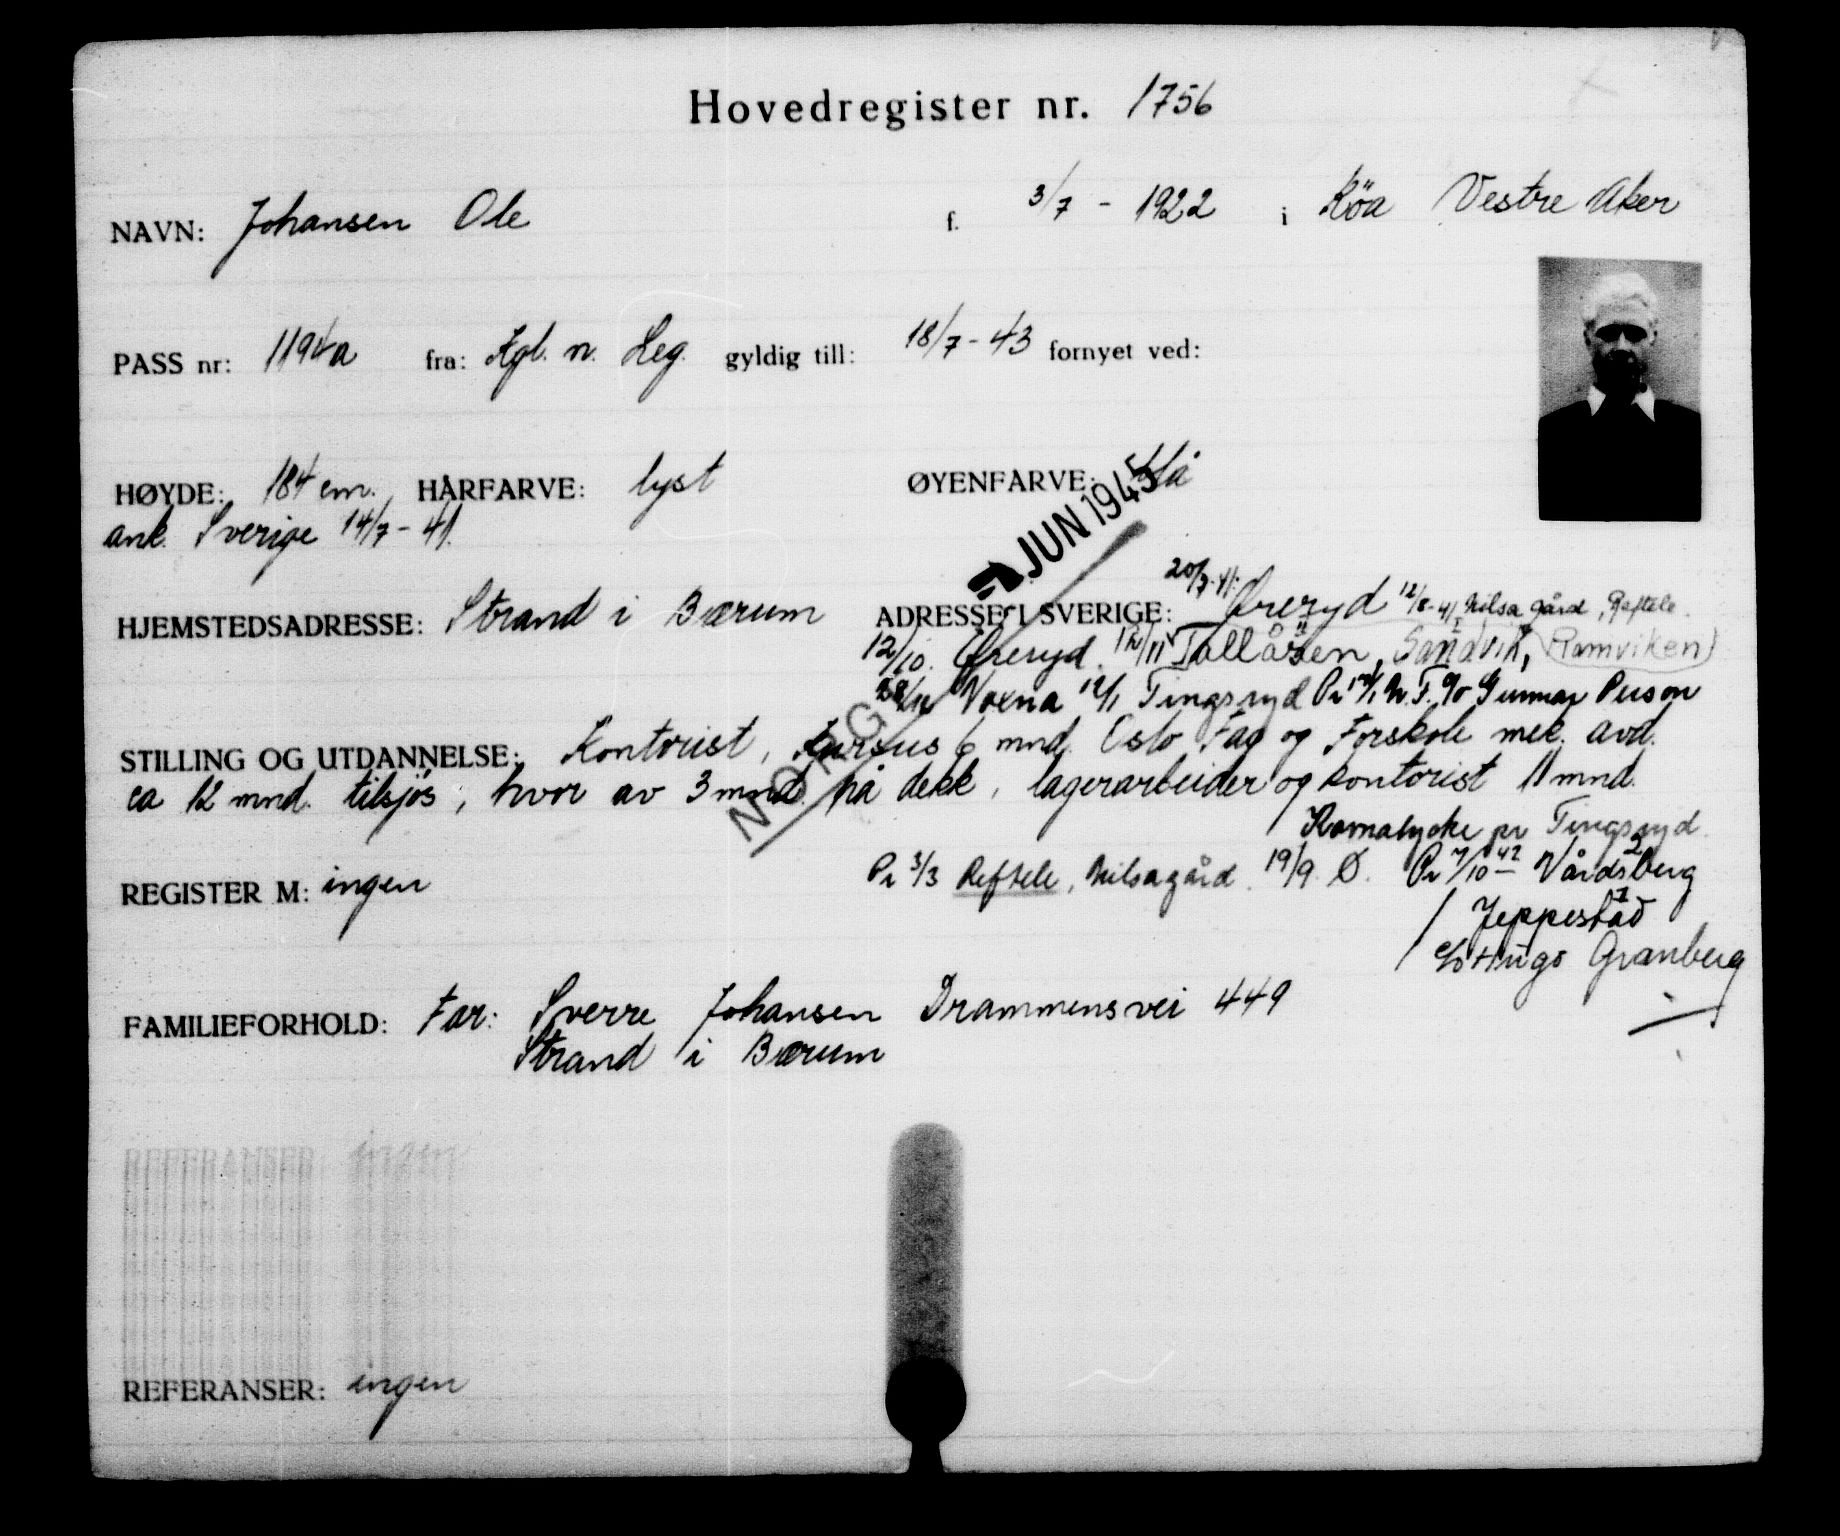 Hovedregister nr. 1756
NAVN: Johansen Ole f. 3/7 - 1922 i Röa Vestre Aker
PASS nr: 1194a fra: Kgl. n. Leg. gyldig till: 18/7 - 43 fornyet ved:
HØYDE: 184 cm. HÅRFARVE: lyst ØYENFARVE: blå
ank. Sverige 14/7 - 41.
JUN 1945
HJEMSTEDSADRESSE: Strand i Bærum ADRESSE I SVERIGE: 20/7-41: Øreryd 12/8-41 Nilsagård, Reftele.
12/10. Øreryd. 12/11 Tallåsen, Sandvik, (Ramviken)
Voxna 12/1 Tingsryd Pr 12/1 N.F. c/o Gunnar Person
NORGE
STILLING OG UTDANNELSE: Kontorist, kursus 6 mnd. Oslo Fag og Forskole mek. avd.
ca 12 mnd. tilsjös, hvor av 3 mnd. på dekk, lagerarbeider og kontorist 11 mnd.
pr Tingsryd.
REGISTER M: ingen Pr 3/3 Reftele, Nilsagård. 19/9. Ø. Pr 7/10-42 Vårdsberg
Jeppestad
c/o Hugo Granberg
FAMILIEFORHOLD: Far: Sverre Johansen Drammensvei 449
Strand i Bærum
REFERANSER ingen
REFERANSER: ingen